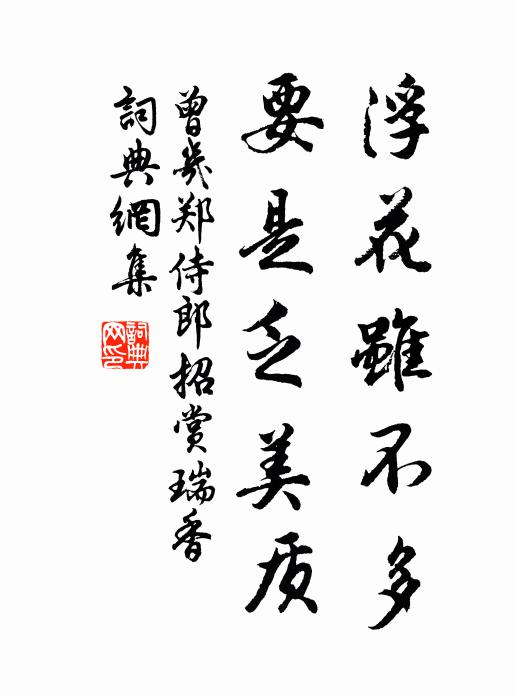 浮花雖不多
要是乏美质
曾幾郑侍郎招赏瑞香
詞典網集
詞典
网印